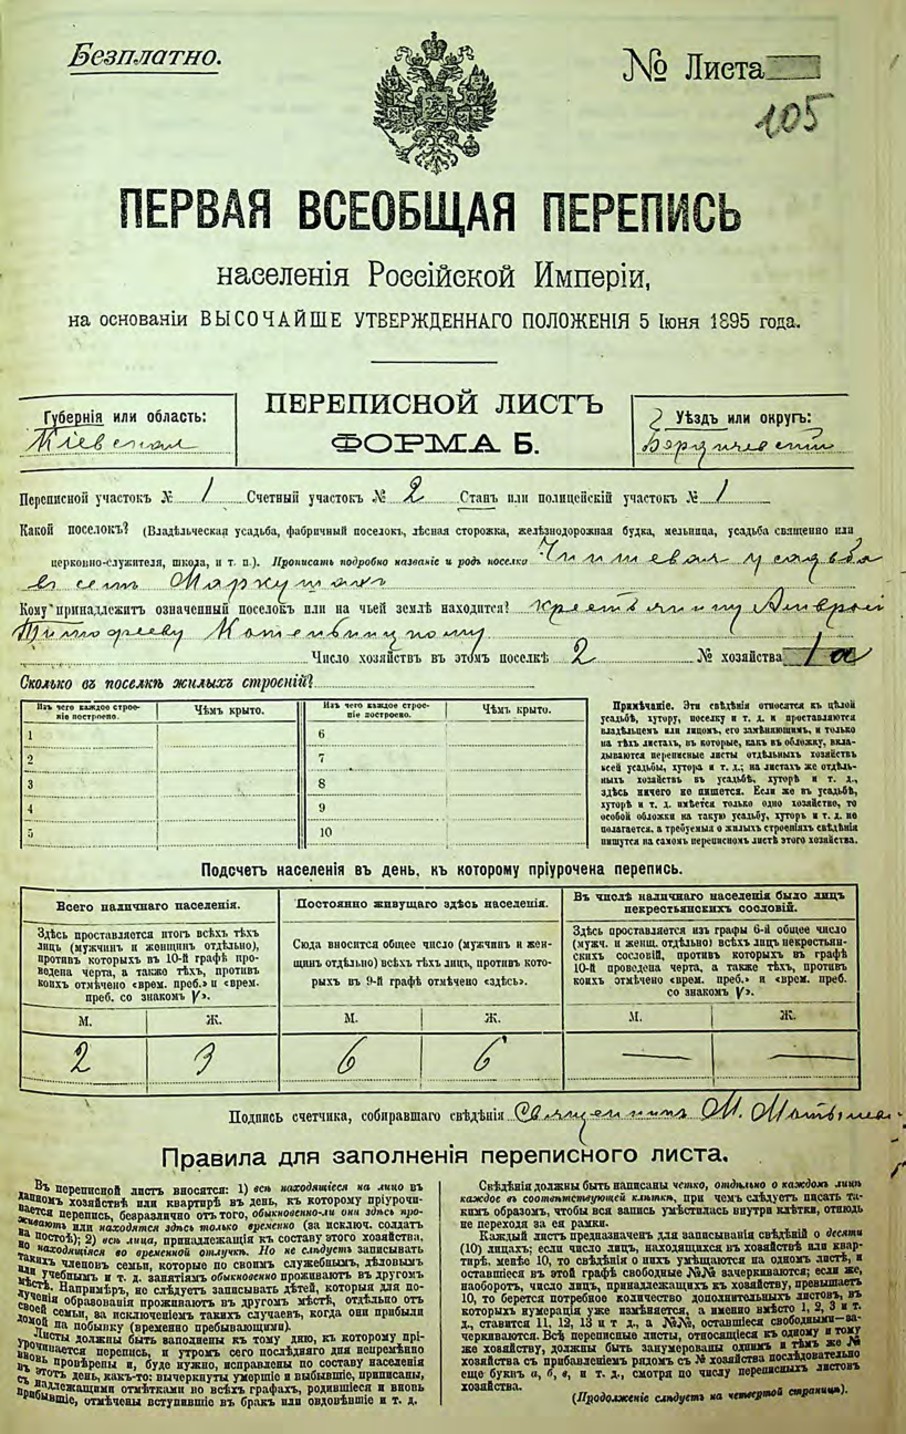 Безплатно.
№ Листа
105
ПЕРВАЯ ВСЕОБЩАЯ ПЕРЕПИСЬ
населенія Россійской Имперіи,
на основаніи ВЫСОЧАЙШЕ УТВЕРЖДЕННАГО ПОЛОЖЕНІЯ 5 Іюня 1895 года.
Губернія или область:
Кіевская
ПЕРЕПИСНОЙ ЛИСТЪ
ФОРМА Б.
Уѣздъ или округъ:
Бердичевскій
Переписной участокъ № 1 Счетный участокъ № 2 Станъ или полицейскій участокъ № 1
Какой поселокъ? (Владѣльческая усадьба, фабричный поселокъ, лѣсная сторожка, желѣзнодорожная будка, мельница, усадьба священно или
церковно-служителя, школа, и т. п.). Прописать подробно названіе и родъ поселка Чиншевая усадьба
въ селѣ Маркушахъ
Кому принадлежитъ означенный поселокъ или на чьей землѣ находится? крестьянину
Тимофееву
Число хозяйствъ въ этомъ поселкѣ 2 № хозяйства 1 а
Сколько въ поселкѣ жилыхъ строеній?
Изъ чего каждое строеніе построено. Чѣмъ крыто. Изъ чего каждое строеніе построено. Чѣмъ крыто.
1 6
2 7
3 8
4 9
5 10
Примѣчаніе. Эти свѣдѣнія относятся къ цѣлой
усадьбѣ, хутору, поселку и т. д. и проставляются
владѣльцемъ или лицомъ, его замѣняющимъ, и только
на тѣхъ листахъ, въ которые, какъ въ обложку, вкладываются переписные листы отдѣльныхъ хозяйствъ
всей усадьбы, хутора и т. д.; на листахъ же отдѣльныхъ хозяйствъ въ усадьбѣ, хуторѣ и т. д.,
здѣсь ничего не пишется. Если же въ усадьбѣ,
хуторѣ и т. д. имѣется только одно хозяйство, то
особой обложки на такую усадьбу, хуторъ и т. д. не
полагается, а требуемыя о жилыхъ строеніяхъ свѣдѣнія
пишутся на самомъ переписномъ листѣ этого хозяйства.
Подсчетъ населенія въ день, къ которому пріурочена перепись.
Всего наличнаго населенія.
Здѣсь проставляется итогъ всѣхъ тѣхъ
лицъ (мужчинъ и женщинъ отдѣльно),
противъ которыхъ въ 10-й графѣ проведена черта, а также тѣхъ, противъ
коихъ отмѣчено «врем. преб.» и «врем.
преб. со знакомъ V».
М. Ж.
2 3
Постоянно живущаго здѣсь населенія.
Сюда вносится общее число (мужчинъ и женщинъ отдѣльно) всѣхъ тѣхъ лицъ, противъ которыхъ въ 9-й графѣ отмѣчено «здѣсь».
М. Ж.
6 6
Въ числѣ наличнаго населенія было лицъ
некрестьянскихъ сословій.
Здѣсь проставляется изъ графы 6-й общее число
(мужч. и женщ. отдѣльно) всѣхъ лицъ некрестьянскихъ сословій, противъ которыхъ въ графѣ
10-й проведена черта, а также тѣхъ, противъ
коихъ отмѣчено «врем. преб.» и «врем. преб.
со знакомъ V».
М. Ж.
— —
Подпись счетчика, собиравшаго свѣдѣнія Священникъ М.
Правила для заполненія переписного листа.
Въ переписной листъ вносятся: 1) всѣ находящіеся на лицо въ
данномъ хозяйствѣ или квартирѣ въ день, къ которому пріурочивается перепись, безразлично отъ того, обыкновенно-ли они здѣсь проживаютъ или находятся здѣсь только временно (за исключ. солдатъ
на постоѣ); 2) всѣ лица, принадлежащія къ составу этого хозяйства,
но находящіяся во временной отлучкѣ. Но не слѣдуетъ записывать
такихъ членовъ семьи, которые по своимъ служебнымъ, дѣловымъ
или учебнымъ и т. д. занятіямъ обыкновенно проживаютъ въ другомъ
мѣстѣ. Напримѣръ, не слѣдуетъ записывать дѣтей, которыя для полученія образованія проживаютъ въ другомъ мѣстѣ, отдѣльно отъ
своей семьи, за исключеніемъ такихъ случаевъ, когда они прибыли
домой на побывку (временно пребывающими).
Листы должны быть заполнены къ тому дню, къ которому пріурочивается перепись, и утромъ сего послѣдняго дня непремѣнно
вновь провѣрены и, буде нужно, исправлены по составу населенія
въ этотъ день, какъ-то: вычеркнуты умершіе и выбывшіе, приписаны,
съ надлежащими отмѣтками во всѣхъ графахъ, родившіеся и вновь
прибывшіе, отмѣчены вступившіе въ бракъ или овдовѣвшіе и т. д.
Свѣдѣнія должны быть написаны четко, отдѣльно о каждомъ лицѣ
каждое въ соотвѣтствующей клѣткѣ, при чемъ слѣдуетъ писать такимъ образомъ, чтобы вся запись умѣстилась внутри клѣтки, отнюдь
не переходя за ея рамки.
Каждый листъ предназначенъ для записыванія свѣдѣній о десяти
(10) лицахъ; если число лицъ, находящихся въ хозяйствѣ или квартирѣ, менѣе 10, то свѣдѣнія о нихъ умѣщаются на одномъ листѣ, и
оставшіеся въ этой графѣ свободные №№ зачеркиваются; если же,
наоборотъ, число лицъ, принадлежащихъ къ хозяйству, превышаетъ
10, то берется потребное количество дополнительныхъ листовъ, въ
которыхъ нумерація уже измѣняется, а именно вмѣсто 1, 2, 3 и т.
д., ставится 11, 12, 13 и т д., а №№, оставшіеся свободными—зачеркиваются. Всѣ переписные листы, относящіеся къ одному и тому
же хозяйству, должны быть занумерованы однимъ и тѣмъ же №
хозяйства съ прибавленіемъ рядомъ съ № хозяйства послѣдовательно
еще буквъ а, б, в, и т. д., смотря по числу переписныхъ листовъ
хозяйства.
(Продолженіе слѣдуетъ на четвертой страницѣ).